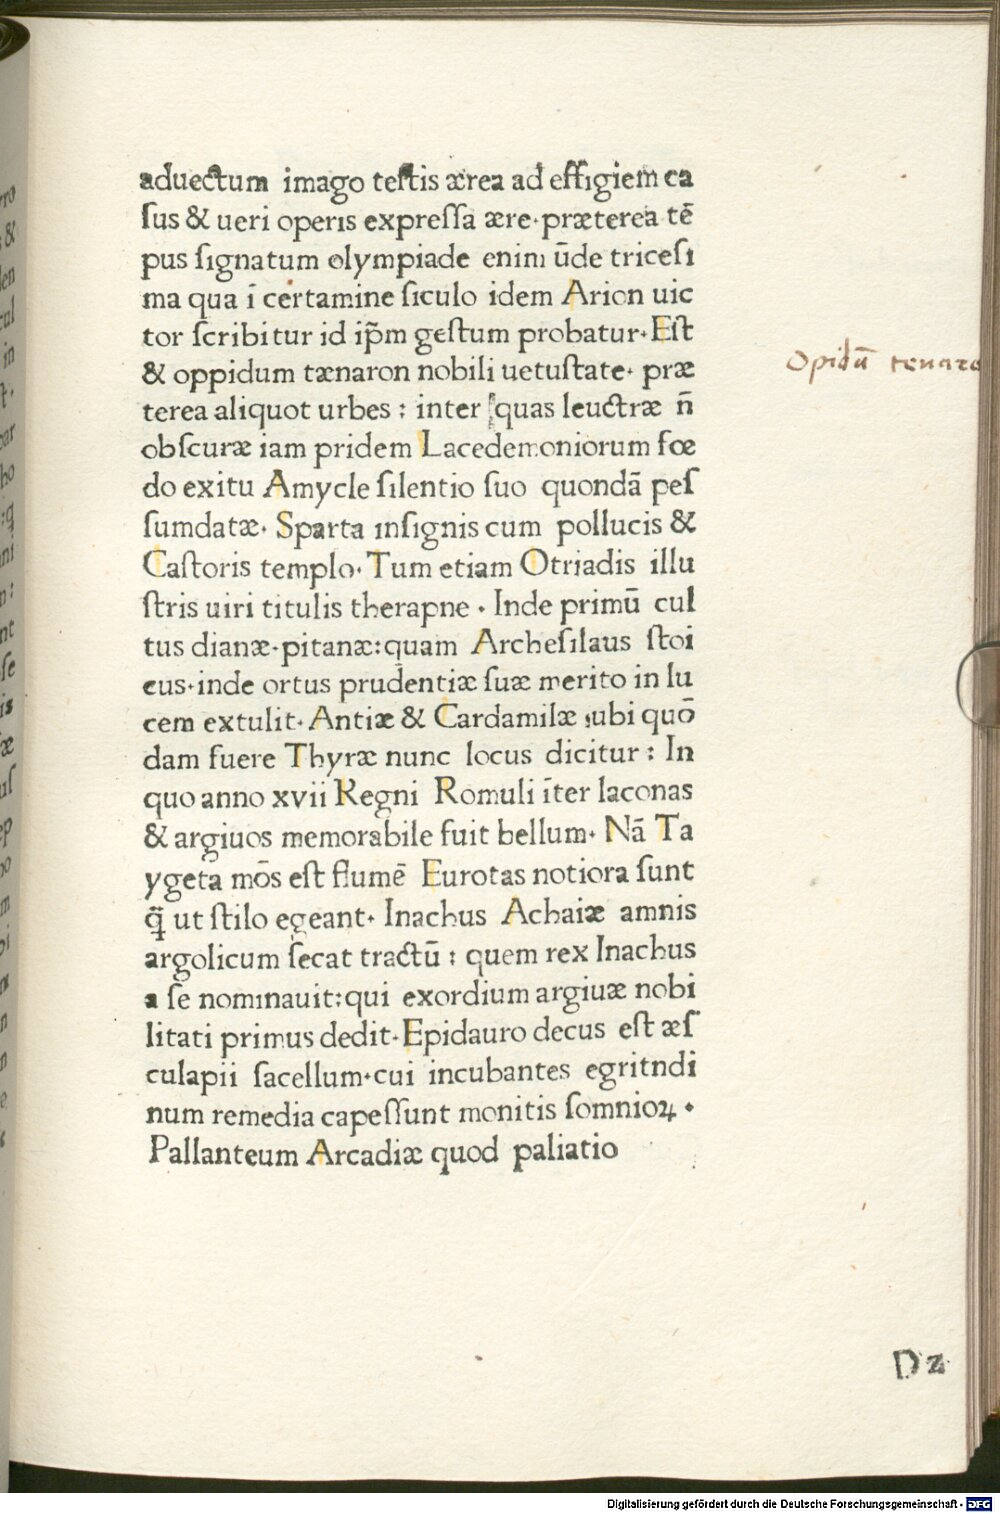 aduectum imago testis ærea ad effigiem ca
ſus & ueri operis expreſſa ære·præterea tē
pus ſignatum olympiade enim ūde triceſi
ma qua ī certamine ſiculo idem Arion uic
tor ſcribitur id ip̄m geſtum probatur·Eſt
& oppidum tænaron nobili uetuſtate· præ
terea aliquot urbes : inter quas leuctræ n̄
obſcuræ iam pridem Lacedemoniorum fœ
do exitu Amycle ſilentio ſuo quondā peſ
ſumdatæ· Sparta inſignis cum pollucis &
Caſtoris templo· Tum etiam Otriadis illu
ſtris uiri titulis therapne · Inde primū cul
tus dianæ·pitanæ:quam Archeſilaus ſtoi
cus·inde ortus prudentiæ ſuæ merito in lu
cem extulit· Antiæ & Cardamilæ ubi quō
dam fuere Thyræ nunc locus dicitur : In
quo anno xvii Regni Romuli īter laconas
& argiuos memorabile fuit bellum· Nā Ta
ygeta mōs eſt flumē Eurotas notiora ſunt
q̄ ut ſtilo egeant· Inachus Achaiæ amnis
argolicum ſecat tractū : quem rex Inachus
a ſe nominauit:qui exordium argiuæ nobi
litati primus dedit·Epidauro decus eſt æſ
culapii ſacellum·cui incubantes egritndi
num remedia capeſſunt monitis ſomnioꝝ ·
Pallanteum Arcadiæ quod paliatio
Opidū tenaro
D2
Digitalisierung gefördert durch die Deutsche Forschungsgemeinschaft - DFG